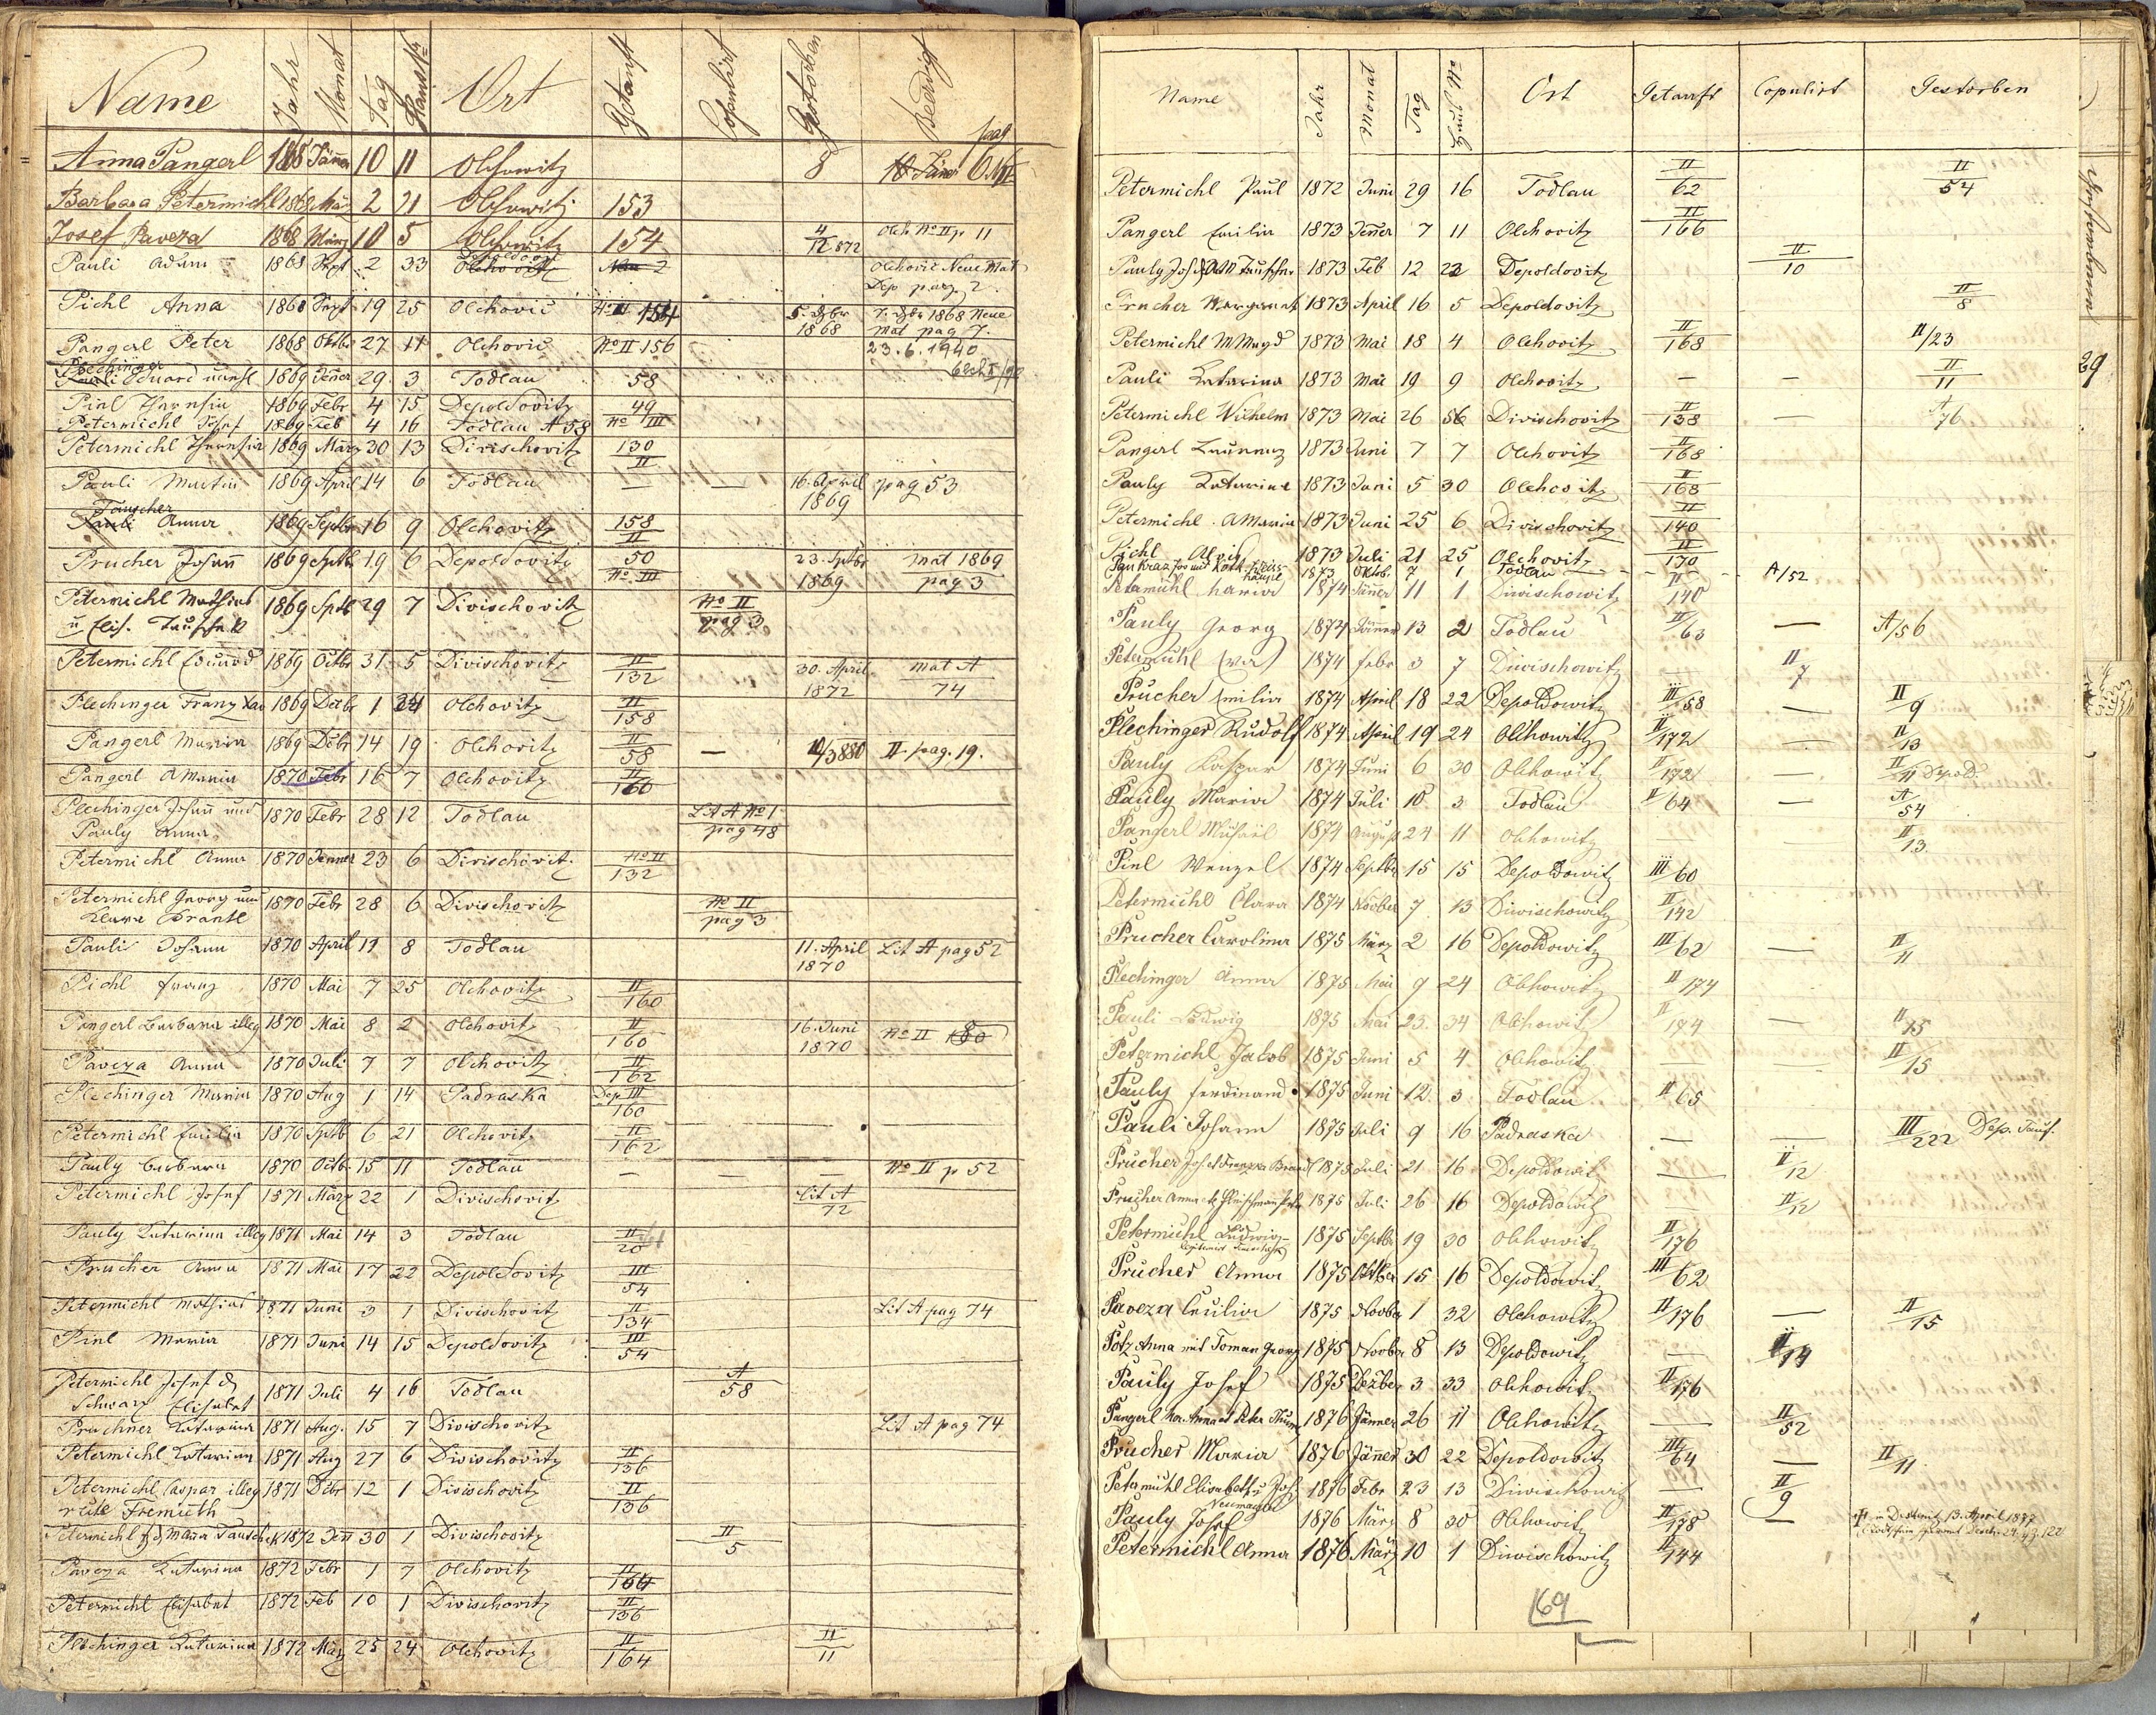 Name Jahr Monat Tag Haus Nr Ort Getauft Copulirt Gestorben Beerdigt
pag
Anna Pangerl 1868 Jänner 10 11 Olchowitz 8 10 Jäner
Barbara Petermichl 1868 März 2 21 Olchowitz 153
Josef Paveza 1868 März 10 5 Olchowitz 154 4/12 872 Olch No II p 11
Depoldovitz
Pauli Adam 1868 Sept 2 33 Olchovitz 2 Olchovic Neue Mat
Dep pag 2.
Pichl Anna 1868 Sept 19 25 Olchovic 154 5. 1868 7. 1868 Neue
Mat pag 7.
Pangerl Peter 1868 Oktbr 27 11 Olchovic No II 156 23.6.1940
Plechinger
Pauli Eduard unehl 1869 Jener 29 3 Todlau 58
Pinl Theresia 1869 Febr 4 15 Depoldovitz 49
Petermichl Josef 1869 Feb 4 16 Todlau A 58 No III
Petermichl Theresia 1869 März 30 13 Divischovitz 130/II
Pauli Martin 1869 April 14 6 Todlau — — 16. April 1869 pag 53
Tauscher
Pauli Anna 1869 Septbr 16 9 Olchovitz 158/II
Prucher Johan̄ 1869 Septb 19 6 Depoldovitz 50 No III 23. Sptbr 1869 Mat 1869 pag 3
Petermichl Mathias 1869 Sptb 29 7 Divischovitz No II pag 3
u Elis. Tauschek
Petermichl Eduard 1869 Octbr 31 5 Divischovitz II/132 30. April 1872 Mat A 74
Plechinger Franz Xav 1869 Decbr 1 24 Olchovitz II/158
Pangerl Maria 1869 Debr 14 19 Olchovitz II/58 — 10/3 880 II pag. 19.
Pangerl AMaria 1870 Febr 16 7 Olchovitz II/160
Plechinger Johan̄ und 1870 Febr 28 12 Todlau Lit A No 1 pag 48
Pauly Anna
Petermichl Anna 1870 Jenner 23 6 Divischovitz No II 132
Petermichl Georg und 1870 Febr 28 6 Divischovitz No II pag 3
Klara Brantl
Pauli Johann 1870 April 11 8 Todlau 11. April 1870 Lit A pag 52
Pichl Franz 1870 Mai 7 25 Olchovitz II/160
Pangerl Barbara illeg 1870 Mai 8 2 Olchovitz II/160 16. Juni 1870 No II
Paveza Anna 1870 Juli 7 7 Olchovitz II/162
Plechinger Maria 1870 Aug 1 14 Padraska Dep III 160
Petermichl Emilia 1870 Sptb 6 21 Olchovitz II/162
Pauly Barbara 1870 Octb 15 11 Todlau — — No II p 52
Petermichl Josef 1871 März 22 1 Divischovitz Lit A 72
Pauly Katarina illeg 1871 Mai 14 3 Todlau II/20
Prucher Anna 1871 Mai 17 22 Depoldovitz III/54
Petermichl Mathias 1871 Juni 3 1 Divischovitz II/134 Lit A pag 74
Pinl Maria 1871 Juni 14 15 Depoldovitz III/54
Petermichl Josef & 1871 Juli 4 16 Todlau A/58
Schwarz Elisabet
Pruchner Katarina 1871 Aug. 15 7 Divischovitz Lit A pag 74
Petermichl Katarina 1871 Aug 27 6 Divischovitz II/136
Petermichl Caspar illeg 1871 Debr 12 1 Divischovitz II/136
recte Fremuth
Petermichl 1872 Jen 30 1 Divischovitz II/5
Paveza Katarina 1872 Febr 1 7 Olchovitz II/164
Petermichl Elisabet 1872 Feb 10 1 Divischovitz II/136
Plechinger Katarina 1872 März 25 24 Olchovitz II/164 II/11
Name Jahr Monat Tag Haus No Ort Getauft Copulirt Gestorben
Petermichl Paul 1872 Juni 29 16 Todlau II/62 II/54
Pangerl Emilia 1873 Jenner 7 11 Olchovitz II/166
Pauly Josef 1873 Feb 12 22 Depoldovitz II/10
Prucher Margaret 1873 April 16 5 Depoldovitz II/8
Petermichl M Magd 1873 Mai 18 4 Olchovitz II/168 II/23
Pauli Katarina 1873 Mai 19 9 Olchovitz — — II/11
Petermichl Wilhelm 1873 Mai 26 Divischovitz II/138 — A/76
Pangerl 1873 Juni 7 7 Olchovitz II/168
Pauly Katarina 1873 Juni 5 30 Olchovitz II/168
Petermichl AMaria 1873 Juni 25 6 Divischovitz II/140
Pichl Alois 1873 Juli 21 25 Olchovitz II/170
Pankraz Jos mit Kath 1873 Oktob. 7 1 Todlau A/52
Petermichl Maria 1874 Jänner 11 1 Diwischowitz II/140
Pauly Georg 1874 Jänner 13 2 Todlau II/63 — A/56
Petermichl Eva 1874 Febr 3 7 Diwischowitz II/7
Prucher Emilia 1874 April 18 22 Depoldowitz III/58 — II/9
Plechinger Rudolf 1874 April 19 24 Olchowitz II/172 — II/13
Pauly Kaspar 1874 Juni 6 30 Olchowitz II/172 — II/11 Depod.
Pauly Maria 1874 Juli 10 3 Todlau II/64 — A/54
Pangerl Michael 1874 August 24 11 Olchowitz — — II/13.
Pinl Wenzel 1874 Septbr 15 15 Depoldowitz III/60
Petermichl Clara 1874 Novber 7 13 Diwischowitz II/142
Prucher Carolina 1875 März 2 16 Depoldowitz III/62 — II/11
Plechinger Anna 1875 Mai 9 24 Olchowitz II/174
Pauli Ludwig 1875 Mai 23. 34 Olchowitz II/174 — II/15
Petermichl Jakob 1875 Juni 5 4 Olchowitz — — II/15
Pauly Ferdinand 1875 Juni 12. 3 Todlau II/65
Pauli Johann 1875 Juli 9 16 Padraska — — III/222 Dep. Tauf.
Prucher Josef 1875 Juli 21 16 Depoldowitz — II/12
Prucher Anna 1875 Juli 26 16 Depoldowitz — II/12
Petermichl Ludwig 1875 Septbr 19 30 Olchowitz II/176
Prucher Anna 1875 Oktber 15 16 Depoldowitz III/62
Paveza Cecilia 1875 Novber 1 32 Olchowitz II/176 — II/15
Potz Anna mit Toman Georg 1875 Novber 8 13 Depoldowitz — II/14
Pauly Josef 1875 Dezber 3 33 Olchowitz II/176
Pangerl 1876 Jänner 26 11 Olchowitz — II/52
Prucher Maria 1876 Jänner 30 22 Depoldowitz III/64 — II/11
Petermichl Elisabeth u Jos. 1876 Febr 23 13 Diwischowitz — II/9
Neumayer
Pauly Josef 1876 März 8 30 Olchowitz II/178 — 13. April 1887
Petermichl Anna 1876 März 10 1 Diwischowitz II/144
169
Gestorbenen
29